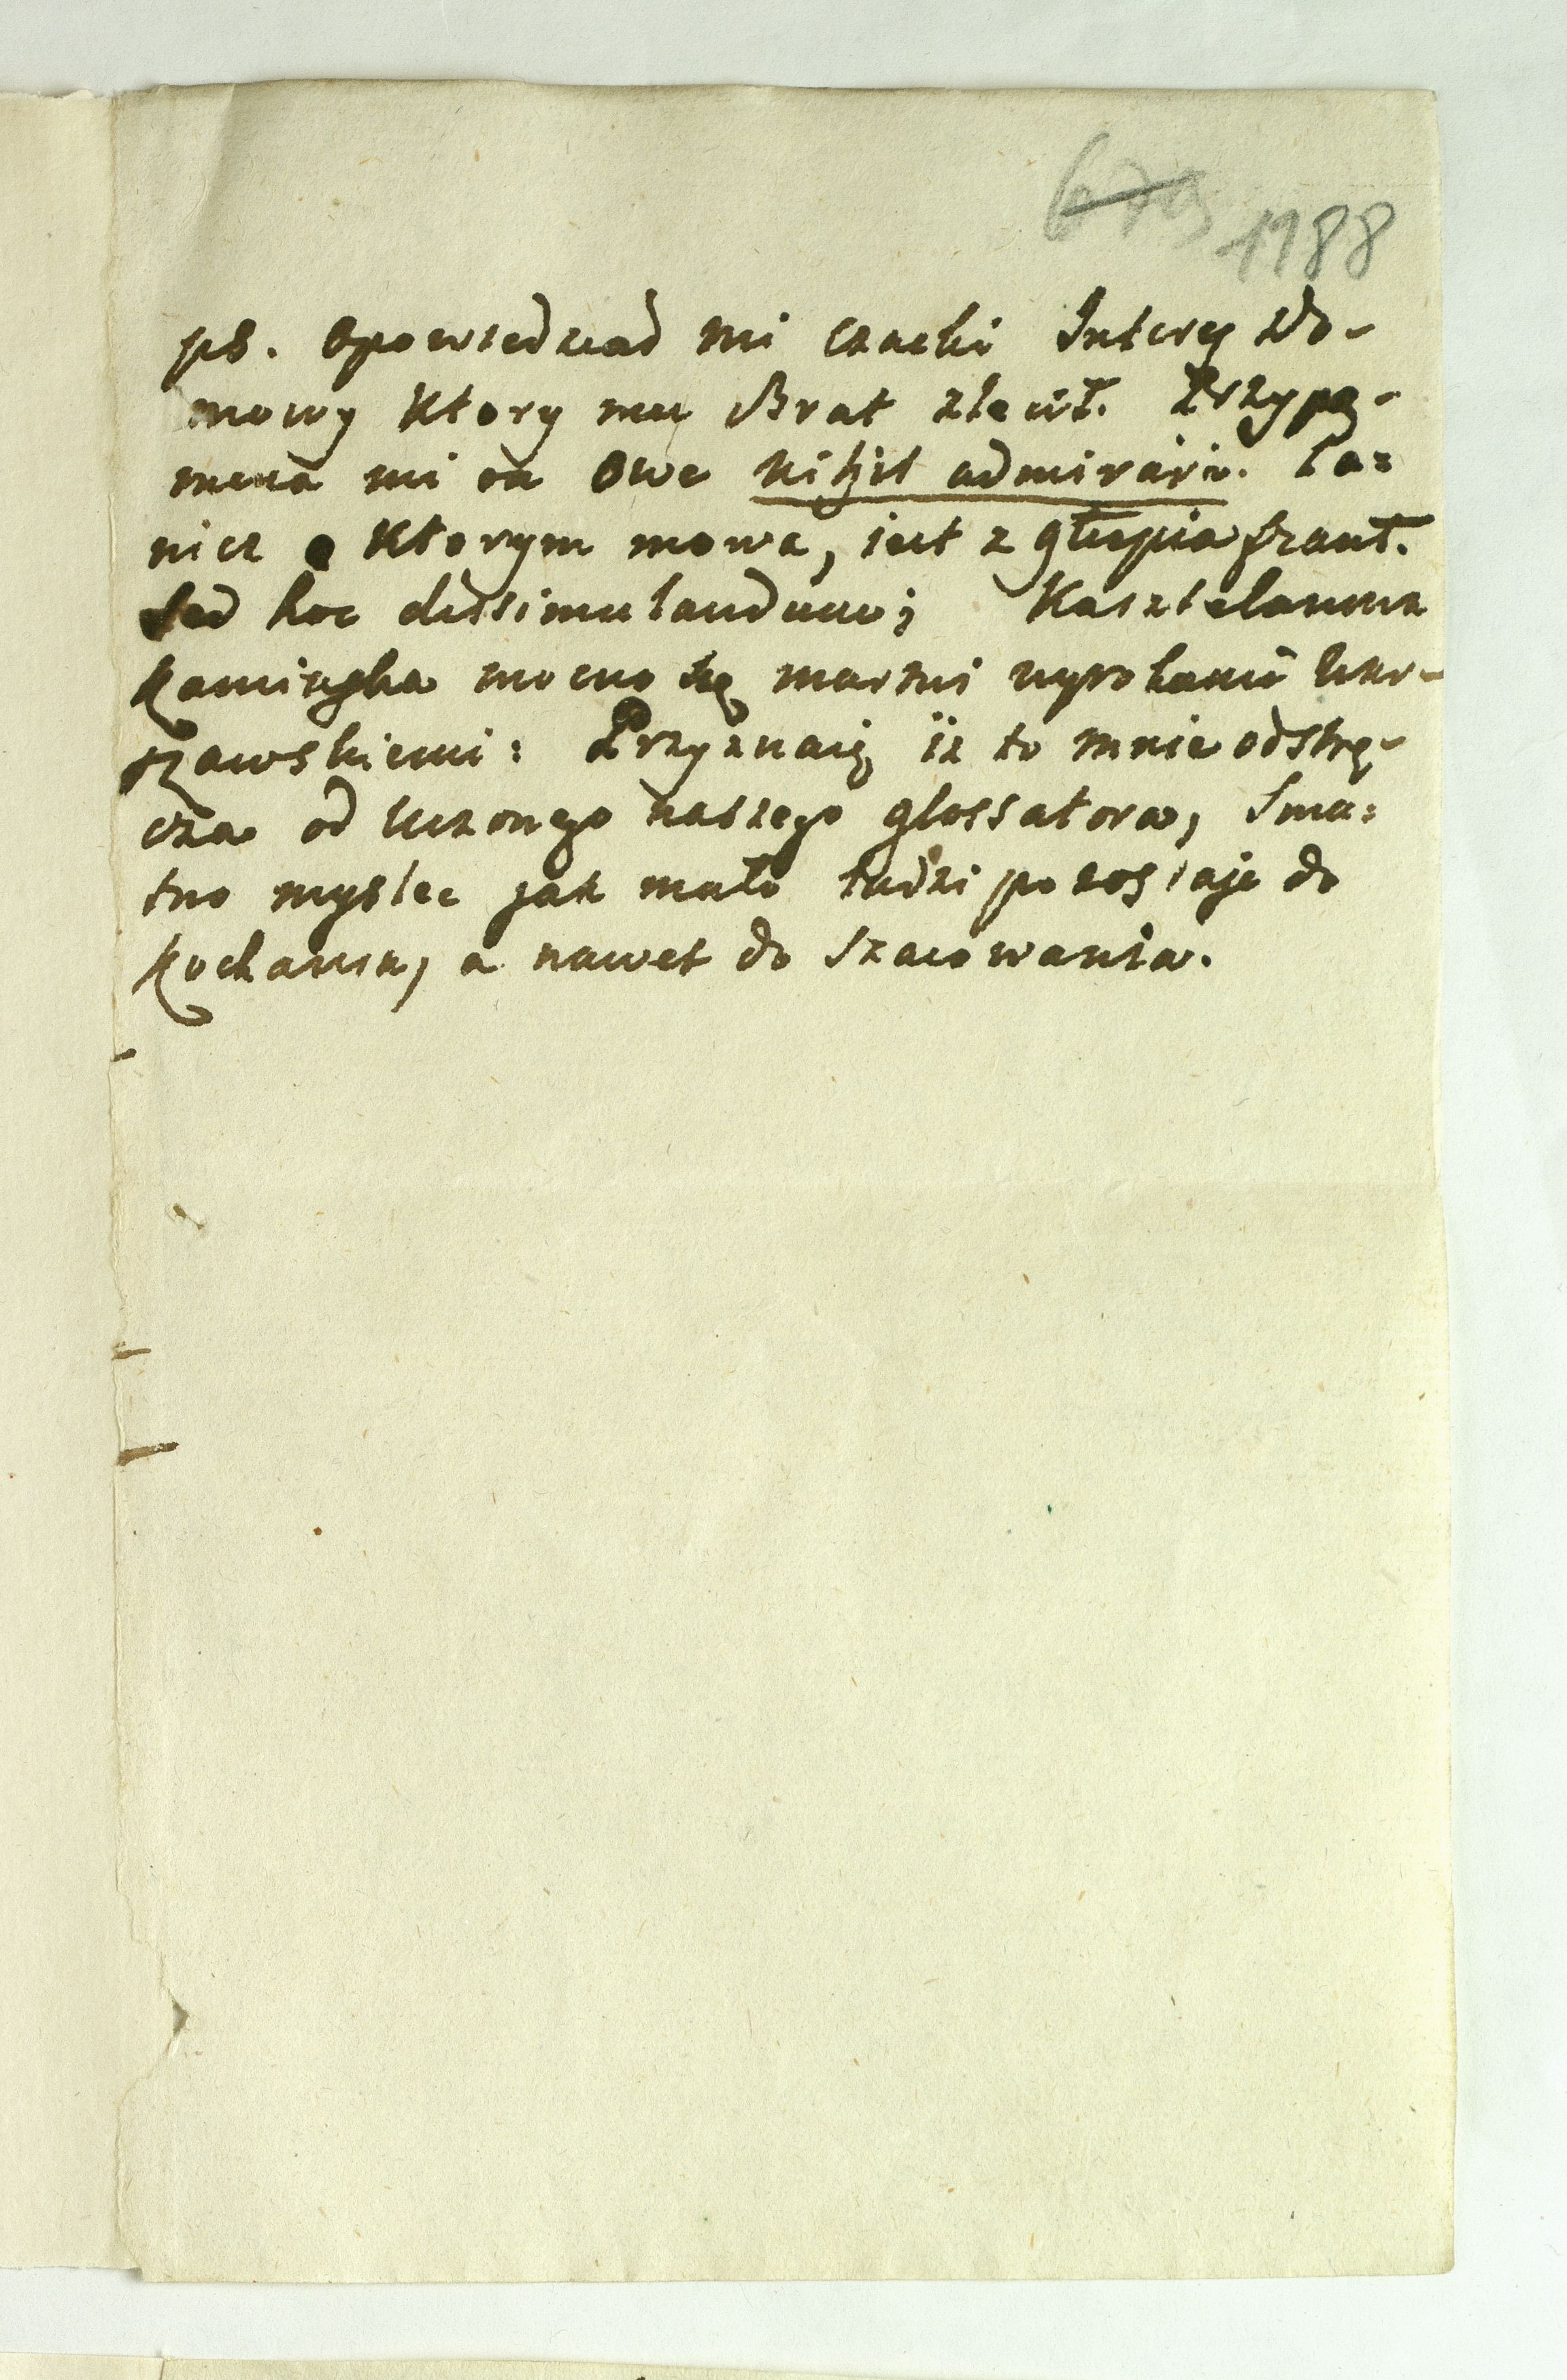 679 1188
ps. opowiedział mi Czacki Interes Do-
mowy ktory mu Brat zlecił. Przypo-
mina mi on owe nihil admirari. La-
nicz o ktorym mowa, iest z głupia frant.
Sed hoc dissimulandum; Kasztelanicz
Kaminska mocno się martwi
Przyznaię iż to mnie odstrę-
cza od uczonego naszego glossatora, Smu-
tno myslec jak mało ludzi pozostaje do
kochania, a nawet do szacowania.